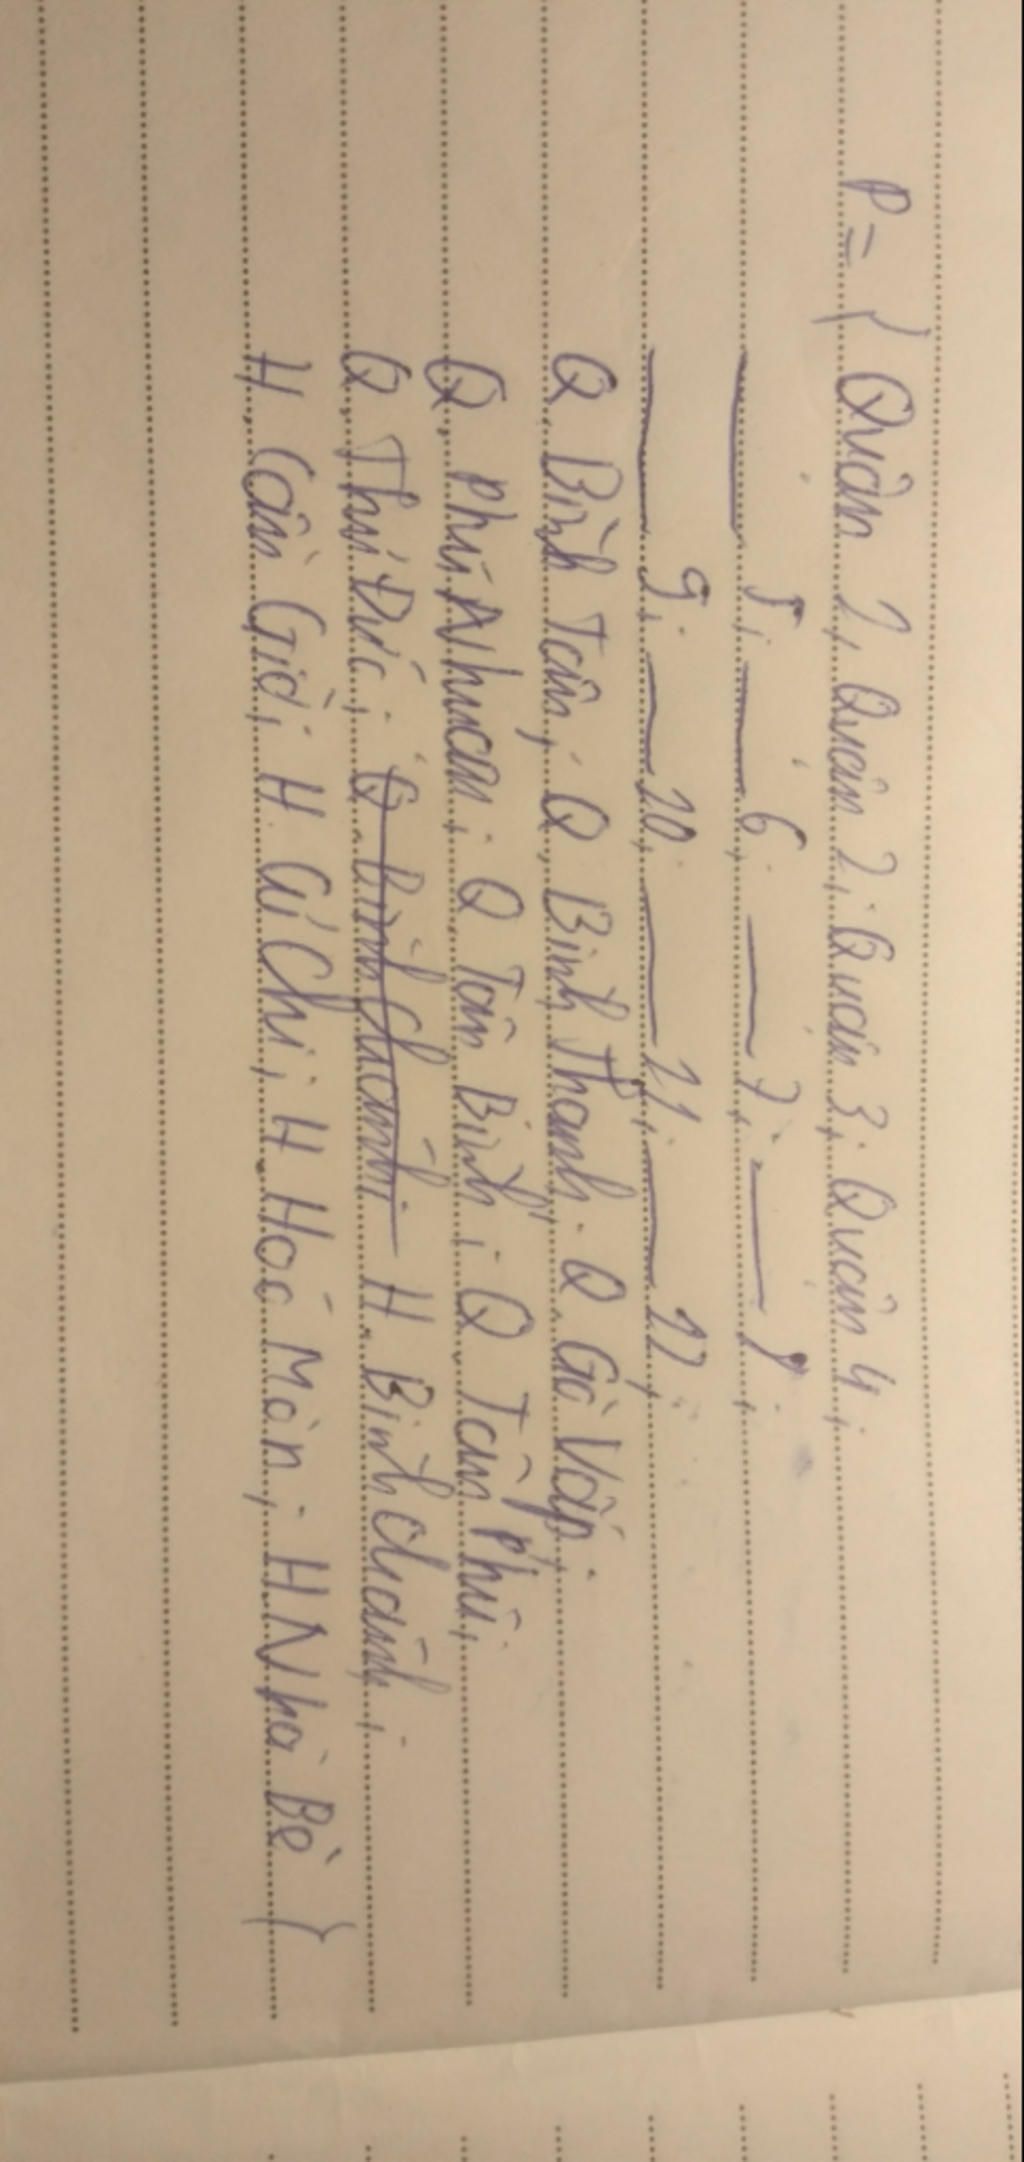 P = { Quận 1, Quận 2; Quận 3; Quận 4;
—— 5; —— 6; —— 7; —— 8;
—— 9; —— 10; —— 11; —— 12;
Q. Bình Tân; Q. Bình Thạnh; Q. Gò Vấp;
Q. Phú Nhuận; Q. Tân Bình; Q. Tân Phú;
Q. Thủ Đức; Q. Bình Chánh H. Bình Chánh;
H. Cần Giờ; H. Củ Chi; H. Hóc Môn; H Nhà Bè }